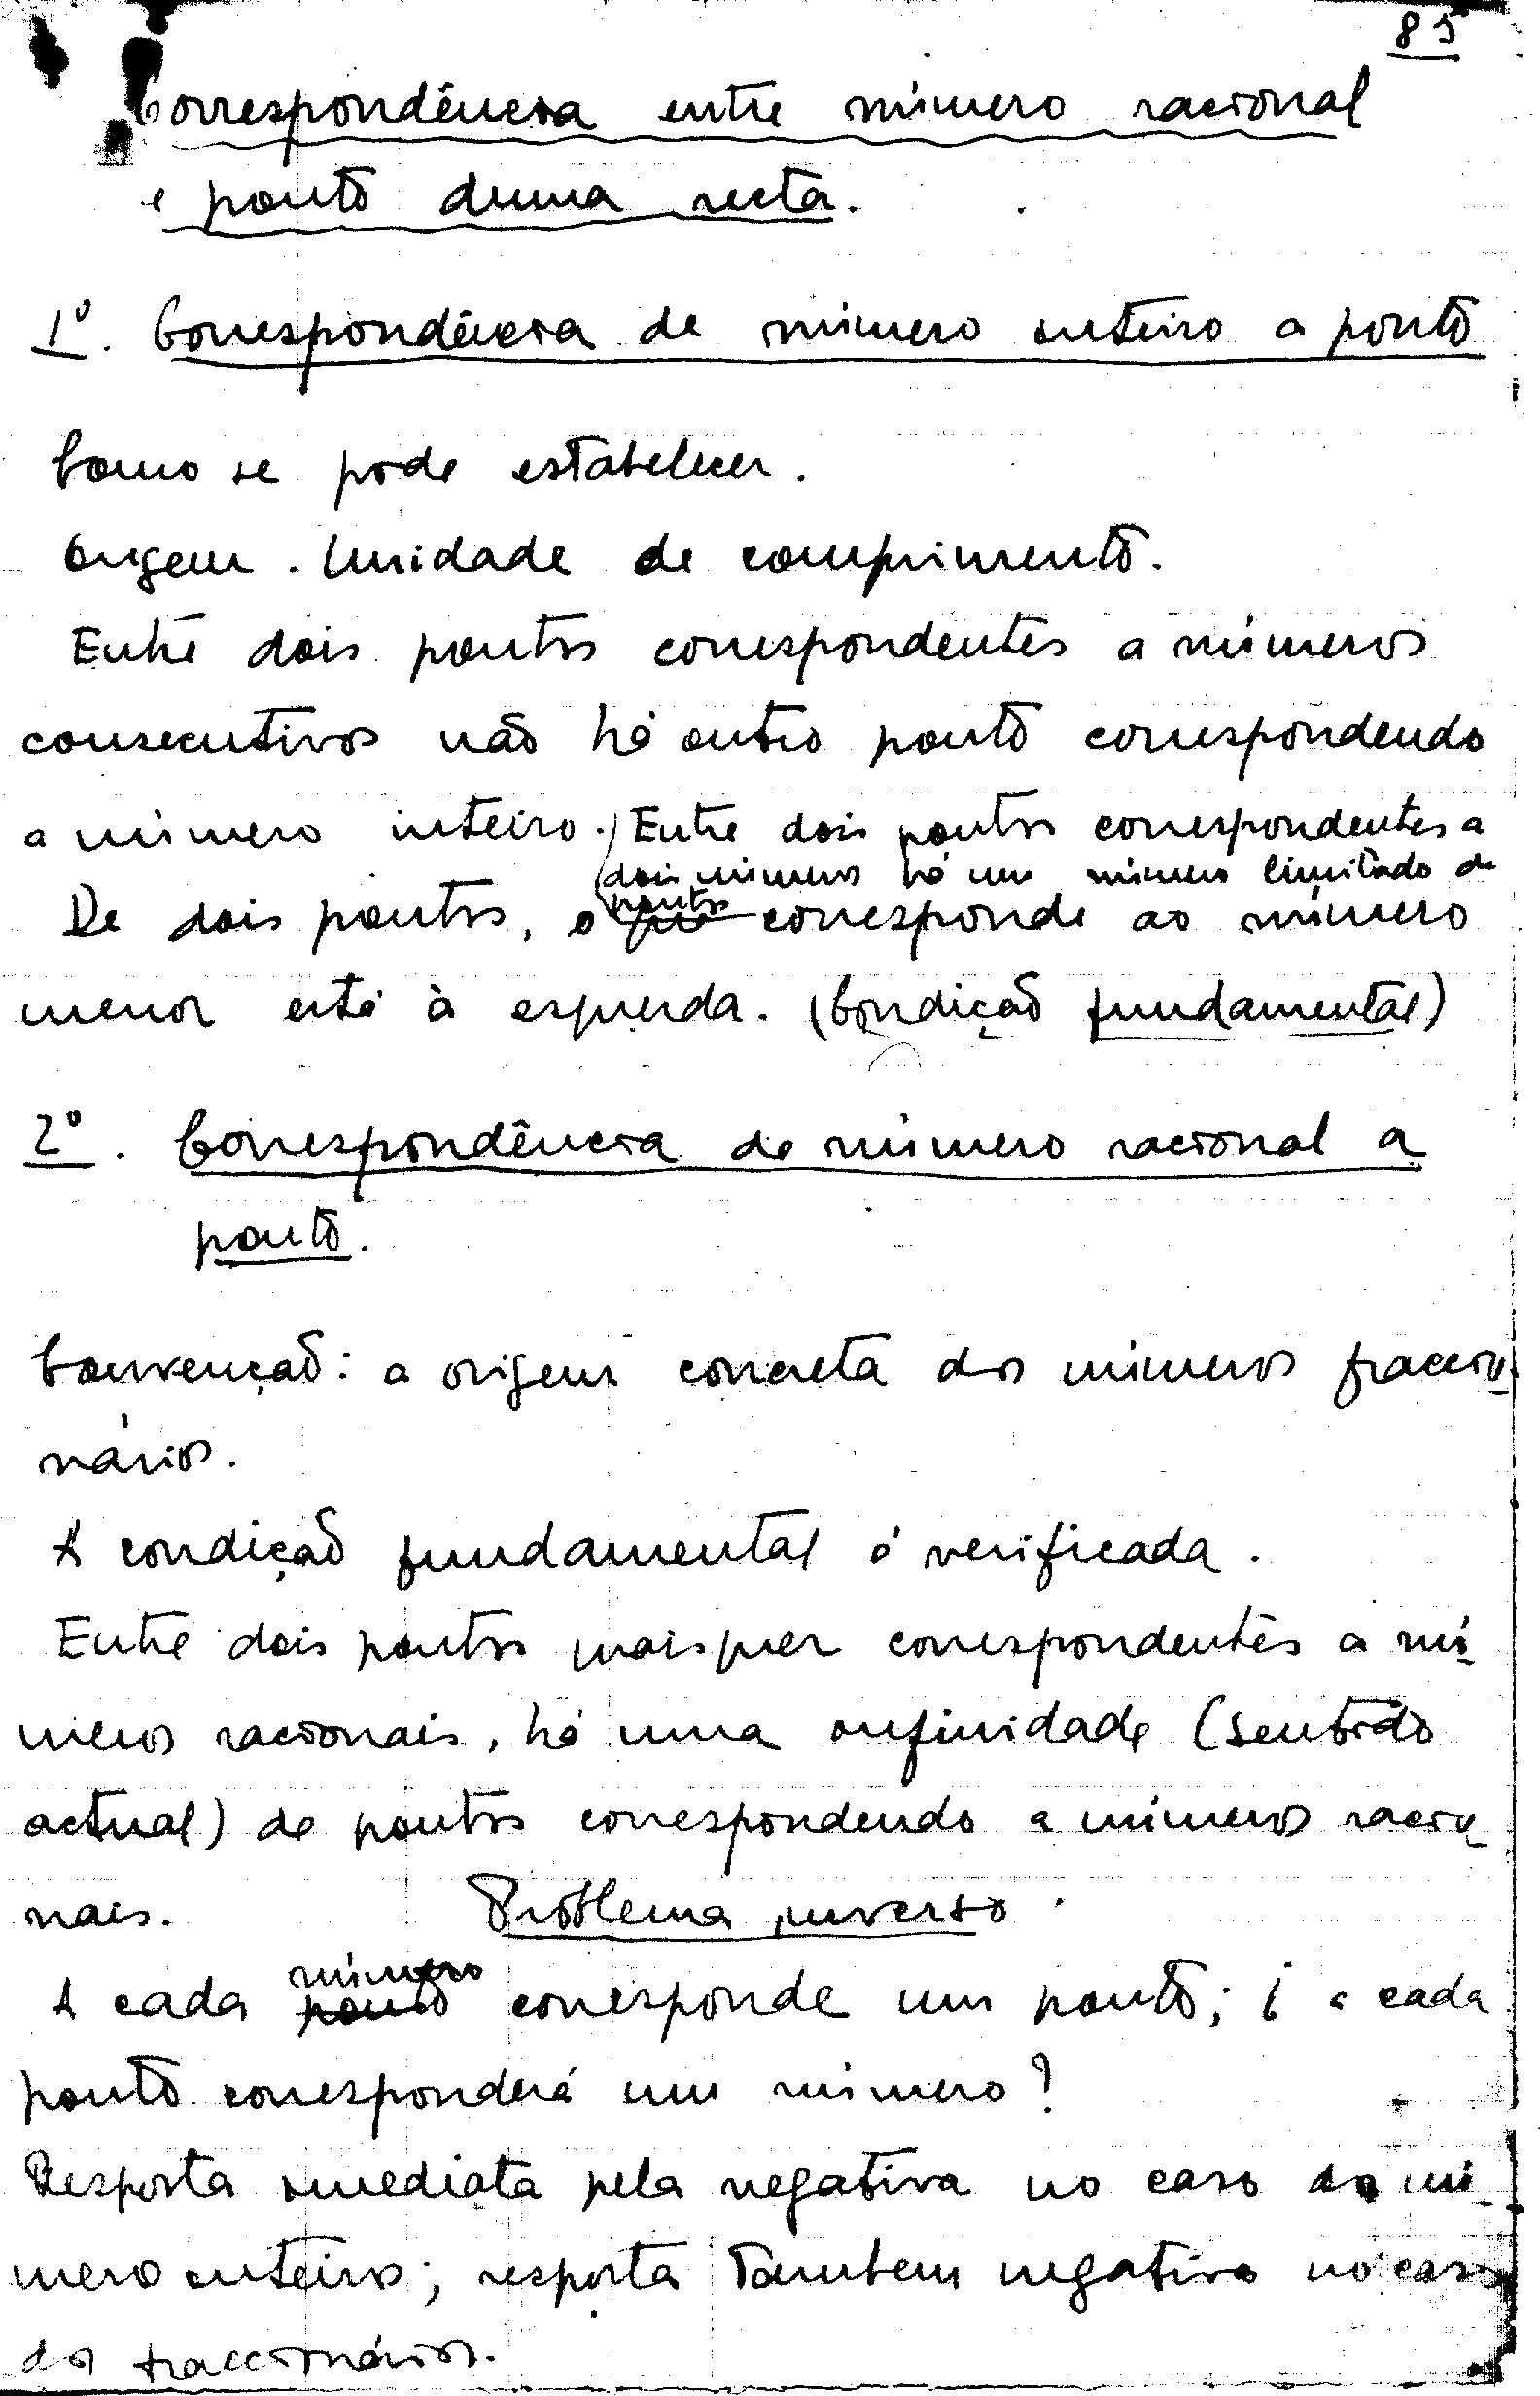 85
Correspondência entre número racional
e ponto duma recta.
1º. Correspondência de número inteiro a ponto
Como se pode estabelecer.
Origem. Unidade de comprimento.
Entre dois pontos correspondentes a números
consecutivos não há outro ponto correspondendo
a número inteiro. Entre dois pontos correspondentes a
dois números há um número limitado de
pontos
De dois pontos, o que corresponde ao número
menor está à esquerda. (Condição fundamental)
2º. Correspondência de número racional a
ponto.
Convenção: a origem concreta dos números fraccio-
nários.
A condição fundamental é verificada.
Entre dois pontos quaisquer correspondentes a nú-
meros racionais, há uma infinidade (sentido
actual) de pontos correspondendo a números racio-
nais.
Problema inverso
A cada ponto número corresponde um ponto; ¿ a cada
ponto corresponderá um número?
Resposta imediata pela negativa no caso do nú-
mero inteiro; resposta também negativa no caso
dos fraccionários.